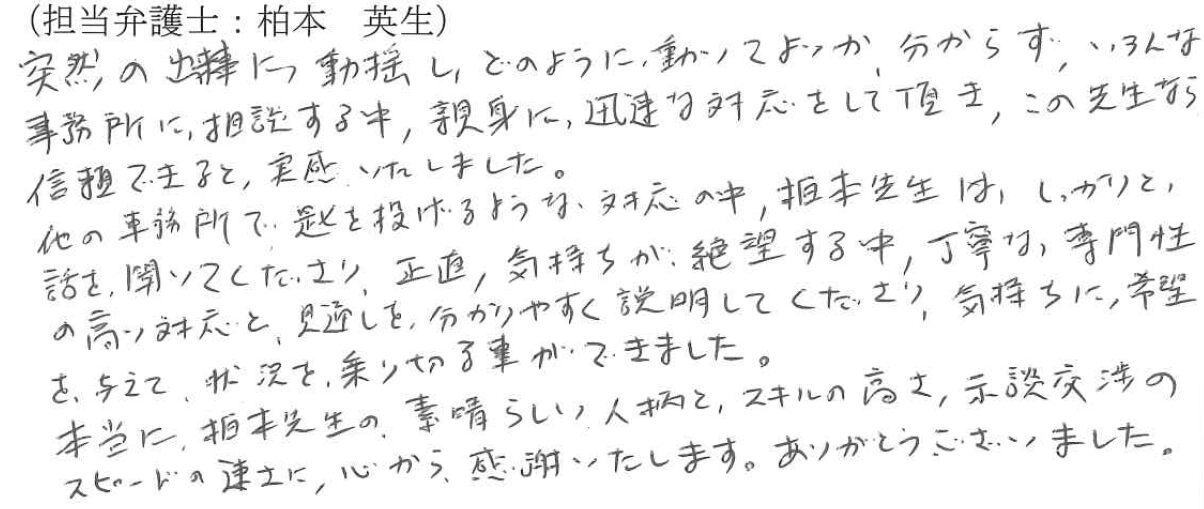 （担当弁護士：柏本　英生）
突然の出来事に、動揺し、どのように、動いてよいか、分からず、いろんな
事務所に、相談する中、親身に、迅速な対応をして頂き、この先生なら
信頼できると、実感いたしました。
他の事務所で、匙を投げるような、対応の中、柏本先生は、しっかりと、
話を、聞いてくださり、正直、気持ちが、絶望する中、丁寧な、専門性
の高い対応と、見通しを、分かりやすく説明してくださり、気持ちに、希望
を、与えて、状況を、乗り切る事ができました。
本当に、柏本先生の、素晴らしい、人柄と、スキルの高さ、示談交渉の
スピードの速さに、心から、感謝いたします。ありがとうございました。